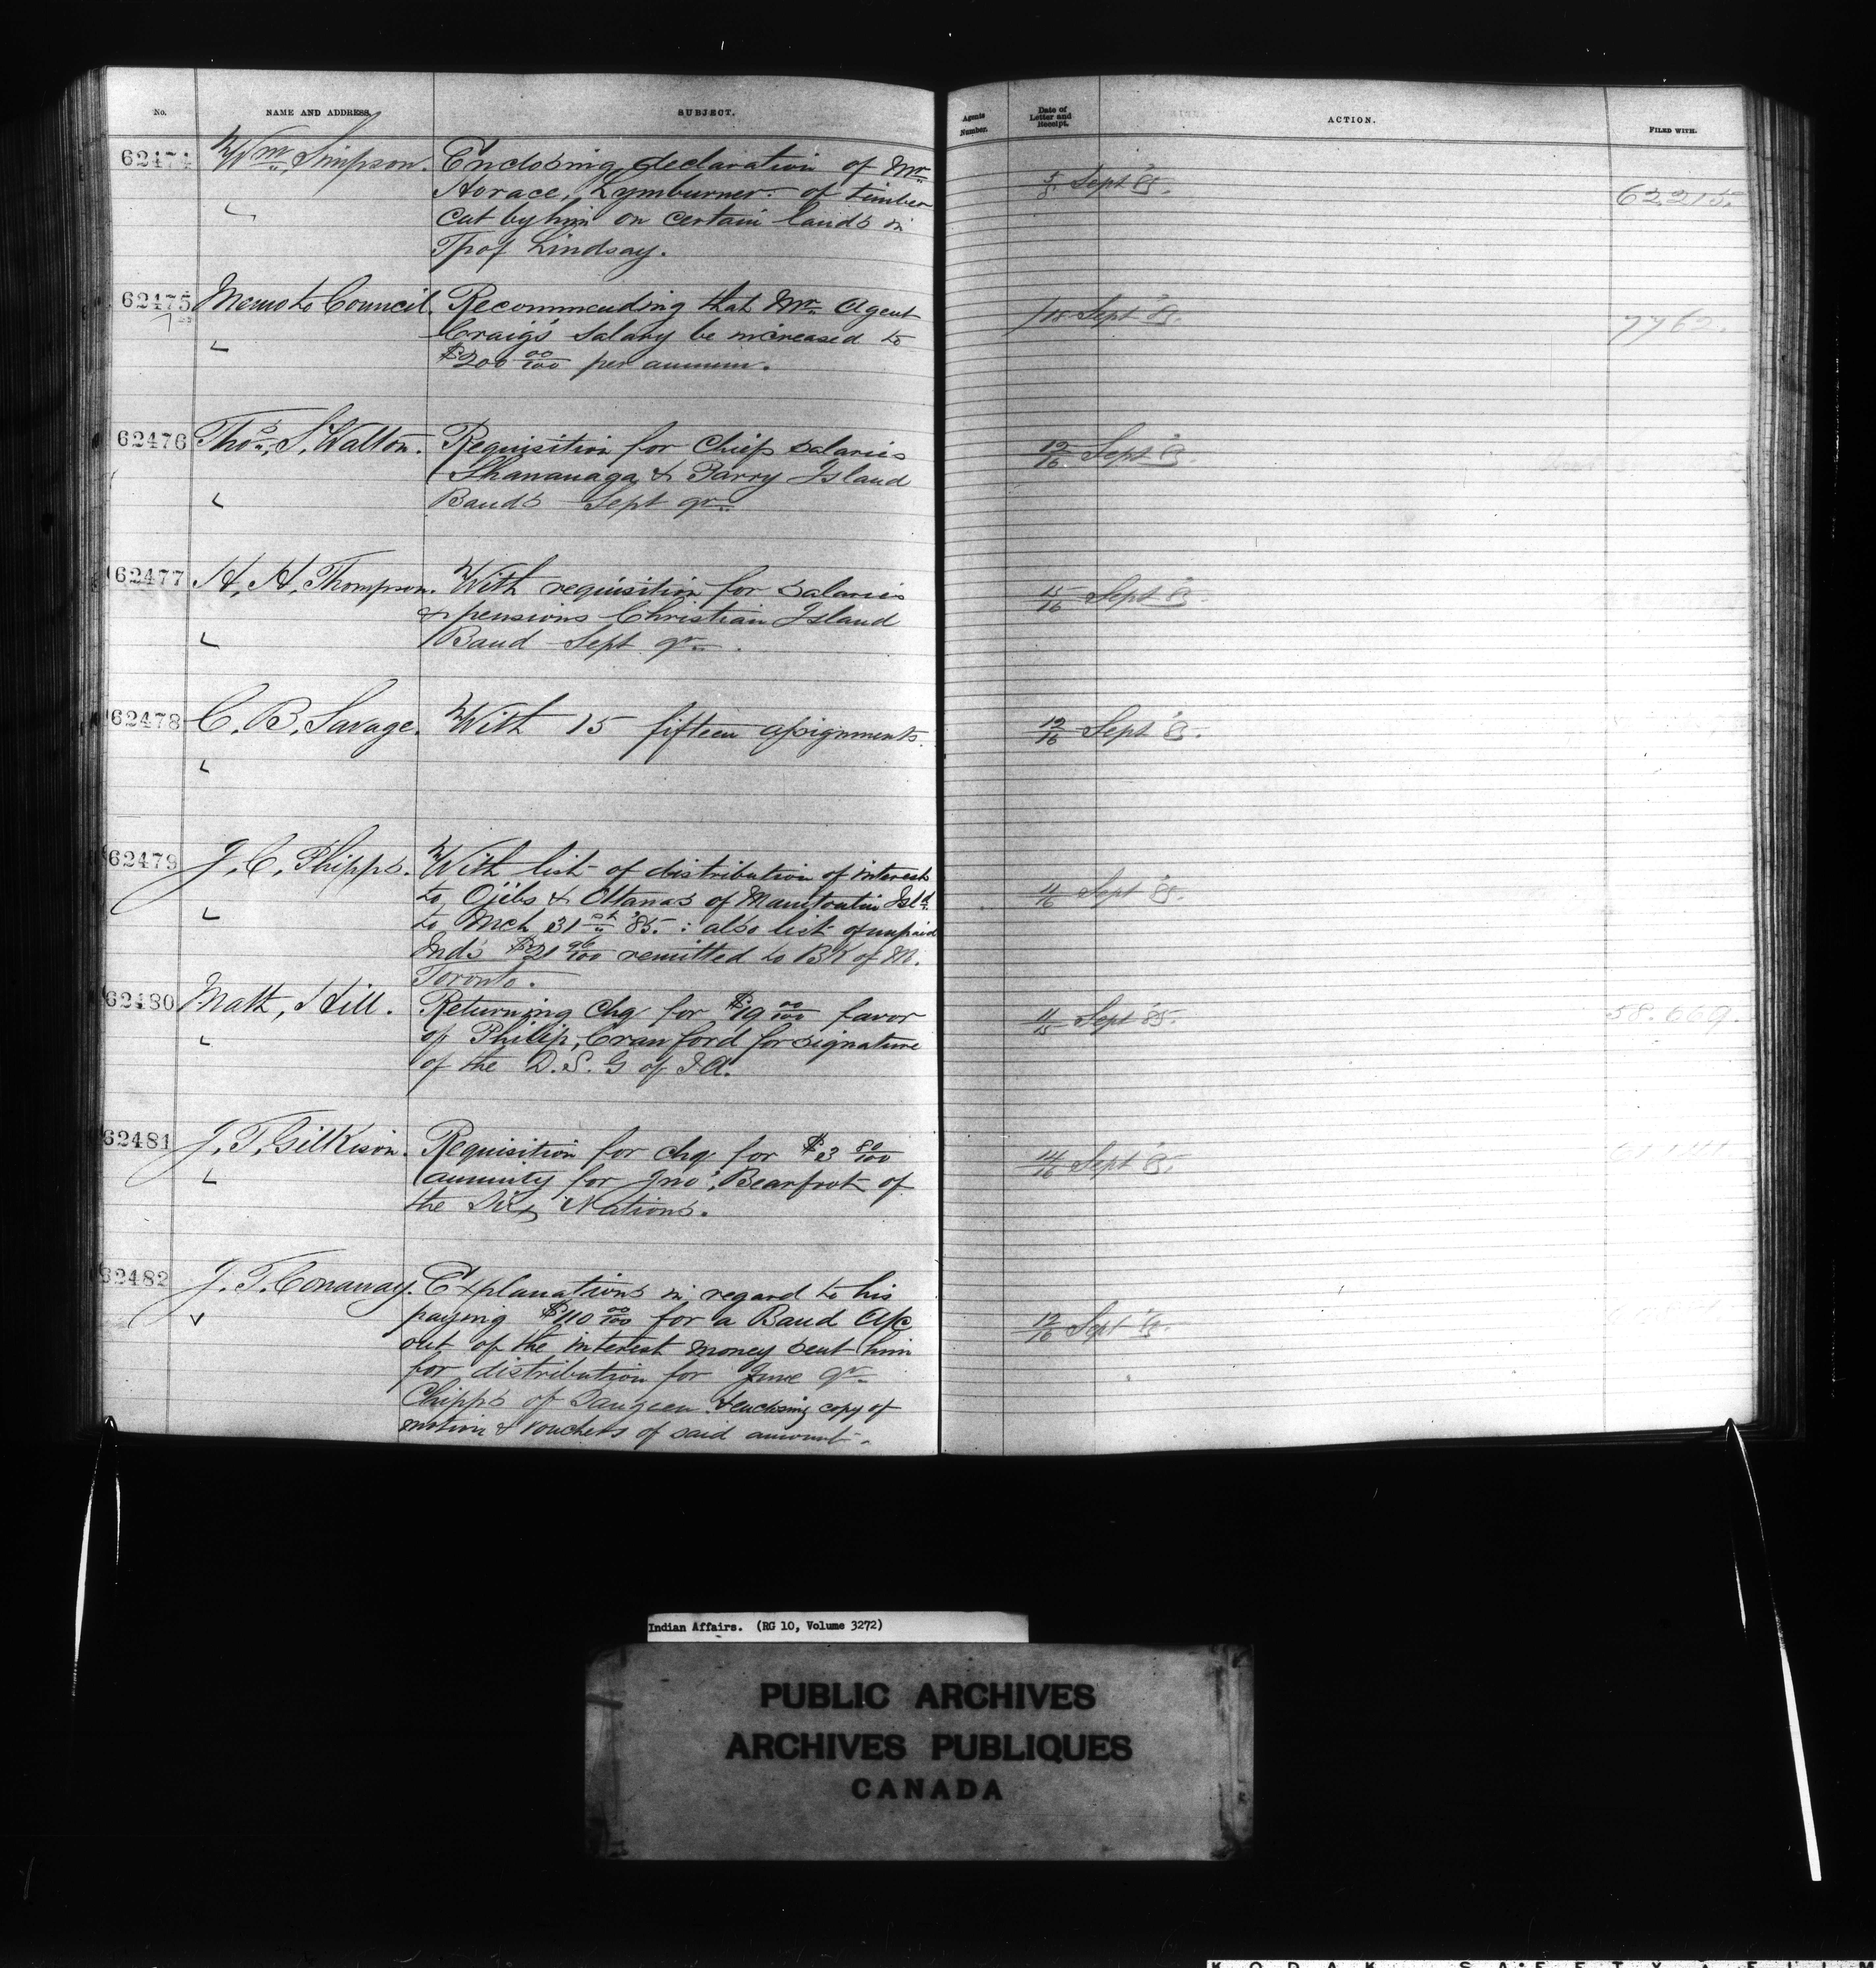 No. NAME AND ADDRESS. SUBJECT. Agents Number. Date of Letter and Receipt. ACTION. FILED WITH.
62474 Wm. Simpson. Enclosing declaration of Mr
Horace, Lymburner: of timber
cut by him on certain lands in
Tp of Lindsay.
Sept 85. 62,215.
62475 Memo to Council. Recommending that Mr Agent
Craig's salary be increased to
$200 00/100 per annum.
Sept 85. 7762.
62476 Thos. S. Walton. Requisition for Chiefs salaries
Shananaga & Parry Island
Bands Sept qr.
12/16 Sept 85.
62477 H. H. Thompson. With requisition for salaries
& pensions Christian Island
Band Sept qr.
15/16 Sept 85.
62478 C. B. Savage. With 15 fifteen assignments.
12/16 Sept 85.
62479 J. C. Phipps. With list of distribution of interest
to Ojibs & Ottawas of Manitoulin Isld
to Mch 31st 85. : also list of unpaid
Inds $21 96/100 remitted to BK of M.
Toronto.
11/16 Sept 85.
62480 Matt, Hill. Returning chq for $19 00/100 favor
of Philip, Cranford for signature
of the D. S. G of I A.
11/15 Sept 85. 58.669.
62481 J. T. Gilkison. Requisition for chq for $3 80/100
annuity for Jno, Bearfoot of
the Six Nations.
14/16 Sept 85.
62482 J. T. Conaway. Explanations in regard to his
paying $110 00/100 for a Band A/c
out of the interest money sent him
for distribution for June qr
Chipps of Saugeen. & enclosing copy of
motion & vouchers of said amount.
12/16 Sept 85.
Indian Affairs. (RG 10, Volume 3272)
PUBLIC ARCHIVES
ARCHIVES PUBLIQUES
CANADA